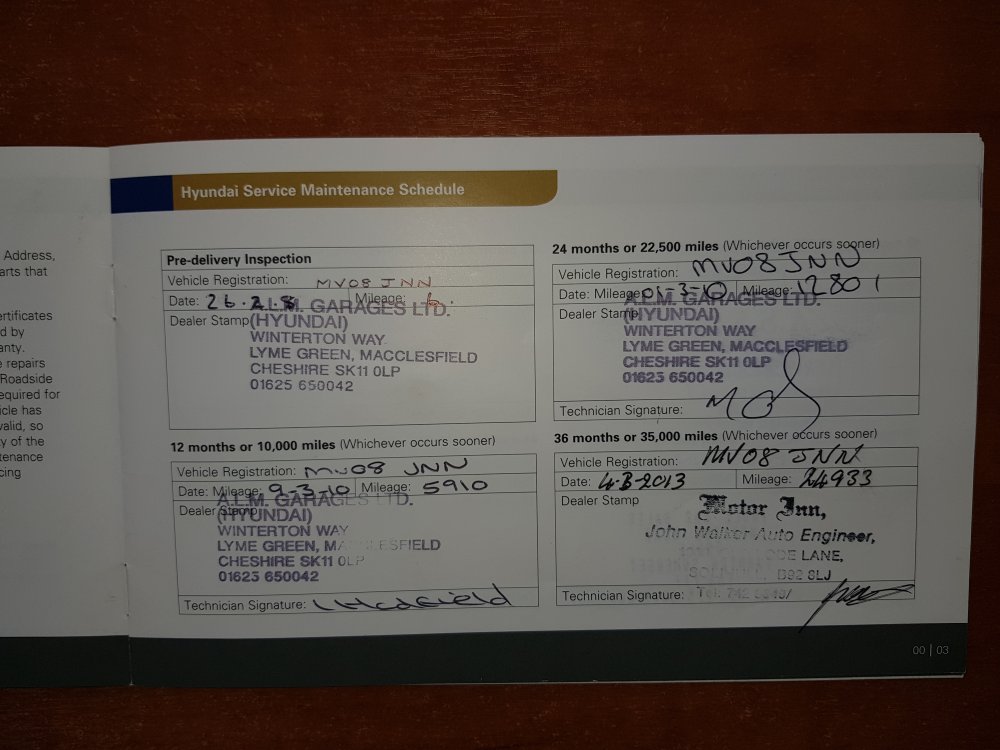 Address,
arts that
ertificates
d by
anty.
e repairs
Roadside
equired for
icle has
valid, so
y of the
tenance
cing
Hyundai Service Maintenance Schedule
Pre-delivery Inspection
Vehicle Registration: MV08 JNN
Date: 26.2.8 Mileage: 6.
Dealer Stamp
A.L.M. GARAGES LTD.
(HYUNDAI)
WINTERTON WAY
LYME GREEN, MACCLESFIELD
CHESHIRE SK11 0LP
01625 650042
12 months or 10,000 miles (Whichever occurs sooner)
Vehicle Registration: MV08 JNN
Date: Mileage: 9-3-10 Mileage: 5910
Dealer Stamp
A.L.M. GARAGES LTD.
(HYUNDAI)
WINTERTON WAY
LYME GREEN, MACCLESFIELD
CHESHIRE SK11 0LP
01623 650042
Technician Signature:
24 months or 22,500 miles (Whichever occurs sooner)
Vehicle Registration: MV08 JNN
Date: Mileage: 01-3-10 Mileage: 12801
Dealer Stamp
A.L.M. GARAGES LTD.
(HYUNDAI)
WINTERTON WAY
LYME GREEN, MACCLESFIELD
CHESHIRE SK11 0LP
01623 650042
Technician Signature:
36 months or 35,000 miles (Whichever occurs sooner)
Vehicle Registration: MV08 JNN
Date: 4-3-2013 Mileage: 24933
Dealer Stamp
Motor Inn,
John Walker Auto Engineer,
LANE,
B92 8LJ
Technician Signature: Tel: 742
00 | 03